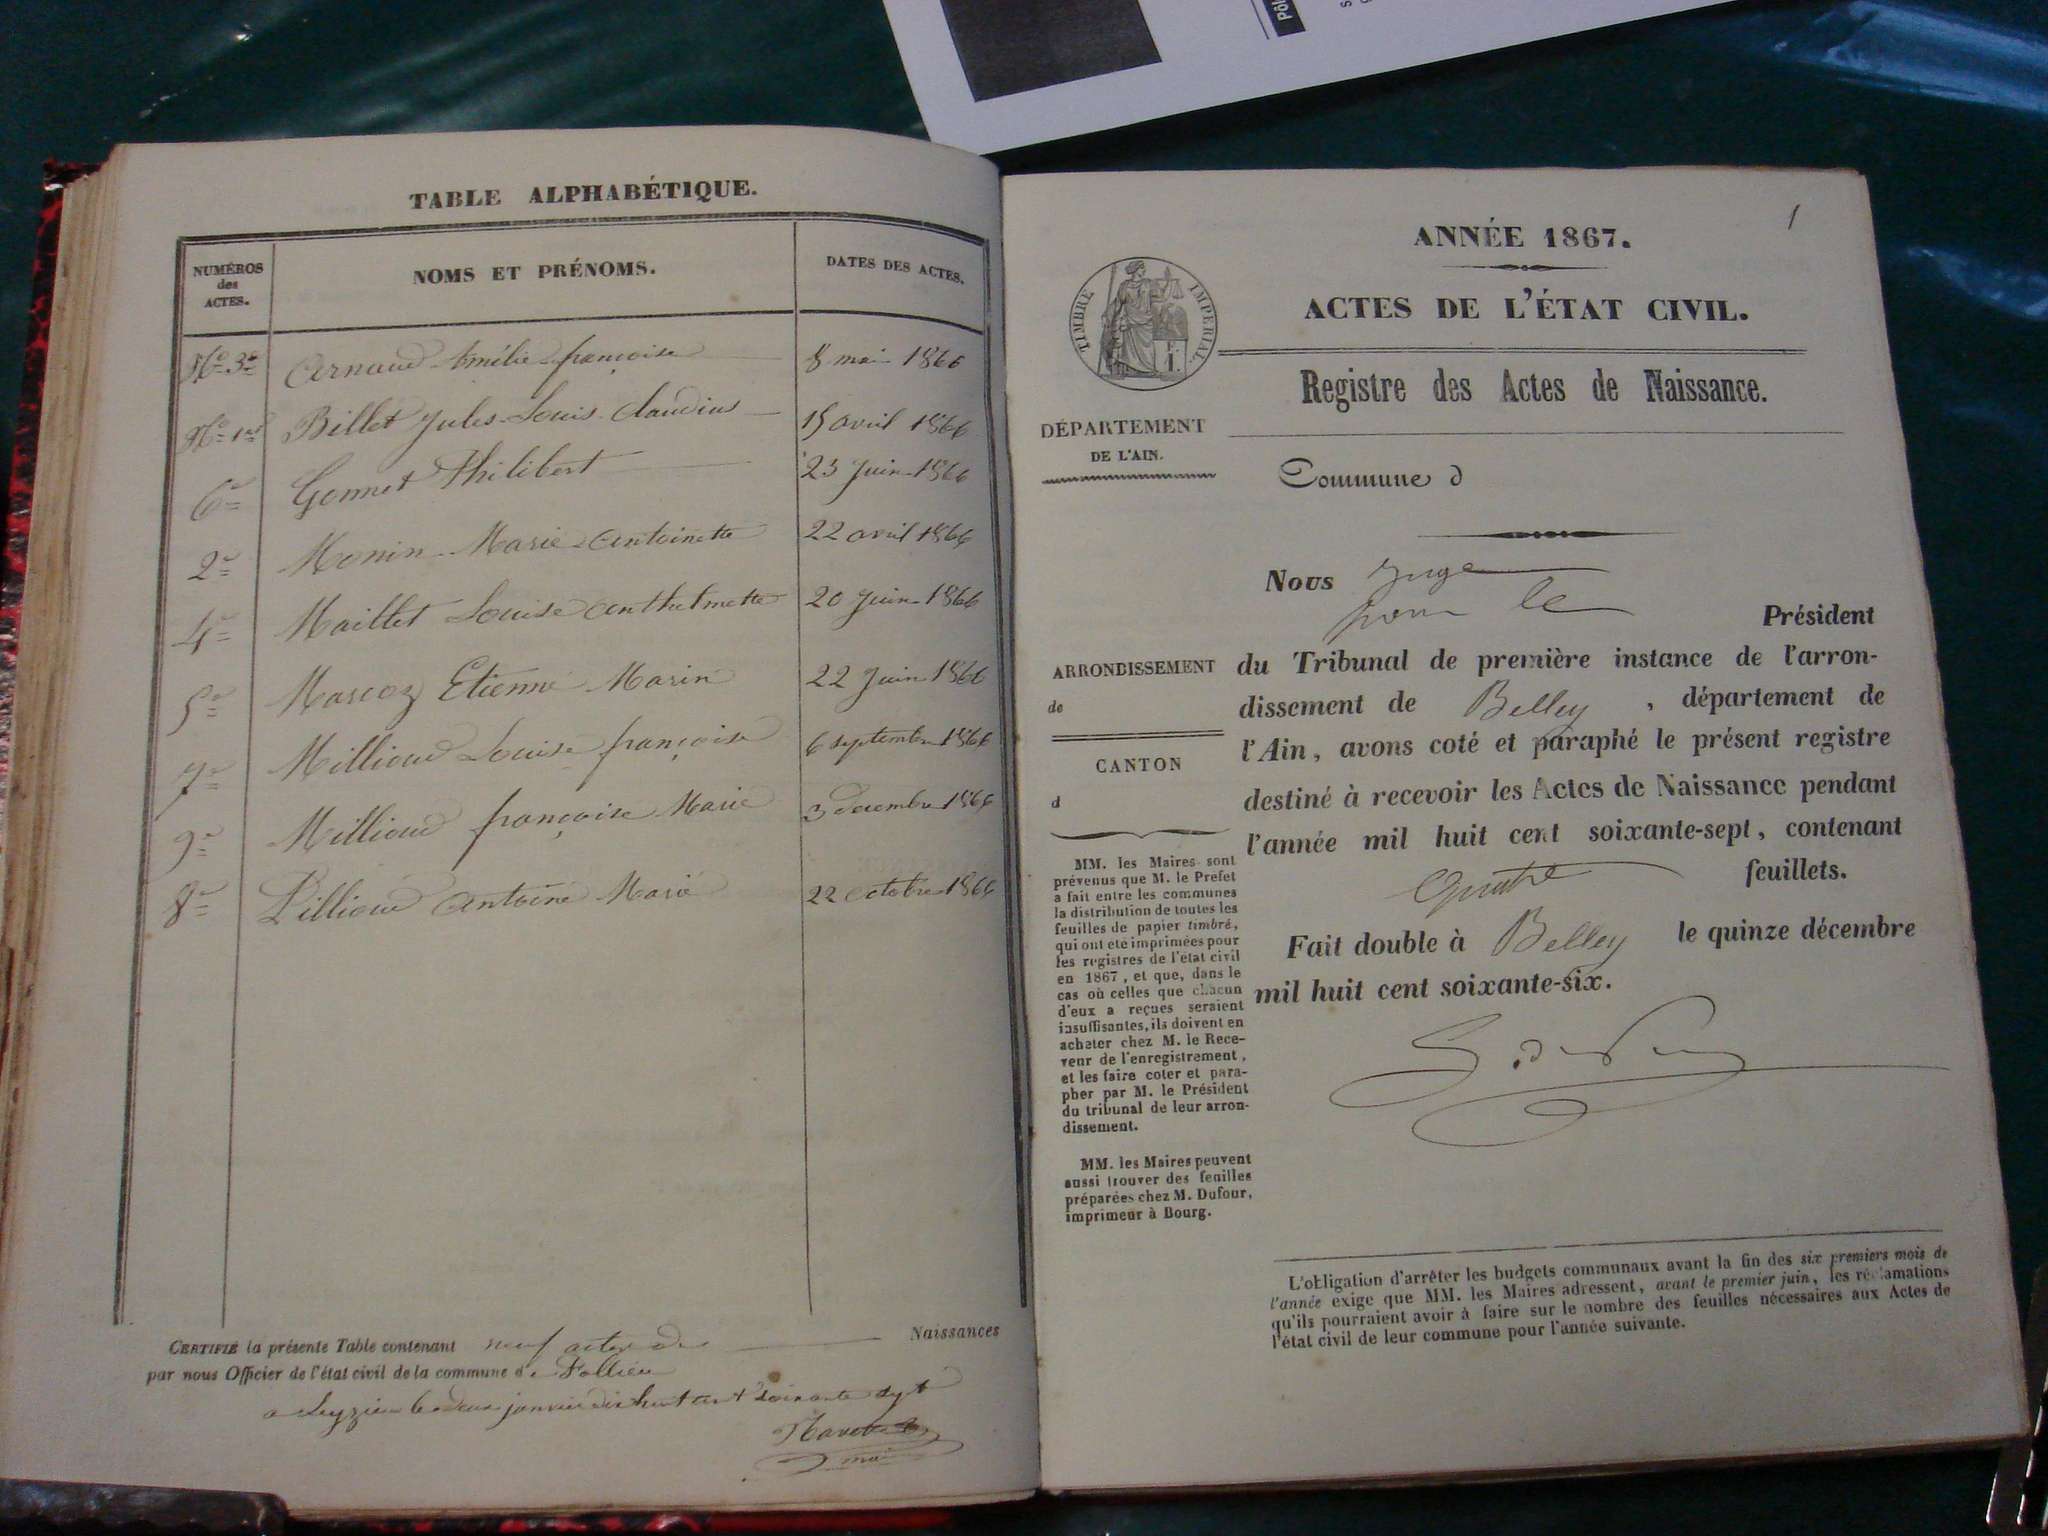 TABLE ALPHABÉTIQUE.
NUMÉROS
des
ACTES.
NOMS ET PRÉNOMS.
DATES DES ACTES.
No 3e Arnaud Amélie françoise 8 mai 1866
No 1er Billet Jules Louis Claudius 15 avril 1866
6e Gonnet Philibert 23 Juin 1866
2e Monin Marie Antoinette 22 avril 1866
4e Maillet Louise Anthelmette 20 Juin 1866
5e Marcoz Etienne Marin 22 Juin 1866
7e Millioud Louise françoise 6 septembre 1866
9e Millioud françoise Marie 3 decembre 1866
8e Pillioud Antoine Marie 22 octobre 1866
CERTIFIÉ la présente Table contenant neuf actes de Naissances
par nous Officier de l'état civil de la commune de Pollieu
a le deux janvier dix huit cent soixante sept
maire
1
ANNÉE 1867.
ACTES DE L'ÉTAT CIVIL.
TIMBRE IMPÉRIAL
Registre des Actes de Naissance.
DÉPARTEMENT
DE L'AIN.
Commune d
Nous Juge
pour le Président
ARRONDISSEMENT
de
CANTON
d
du Tribunal de première instance de l'arron-
dissement de Belley, département de
l'Ain, avons coté et paraphé le présent registre
destiné à recevoir les Actes de Naissance pendant
l'année mil huit cent soixante-sept, contenant
Quatre feuillets.
Fait double à Belley le quinze décembre
mil huit cent soixante-six.
MM. les Maires sont
prévenus que M. le Préfet
a fait entre les communes
la distribution de toutes les
feuilles de papier timbré,
qui ont été imprimées pour
les registres de l'état civil
en 1867, et que, dans le
cas où celles que chacun
d'eux a reçues seraient
insuffisantes, ils doivent en
acheter chez M. le Rece-
veur de l'enregistrement,
et les faire coter et para-
pher par M. le Président
du tribunal de leur arron-
dissement.
MM. les Maires peuvent
aussi trouver des feuilles
préparées chez M. Dufour,
imprimeur à Bourg.
L'obligation d'arrêter les budgets communaux avant la fin des six premiers mois de
l'année exige que MM. les Maires adressent, avant le premier juin, les réclamations
qu'ils pourraient avoir à faire sur le nombre des feuilles nécessaires aux Actes de
l'état civil de leur commune pour l'année suivante.